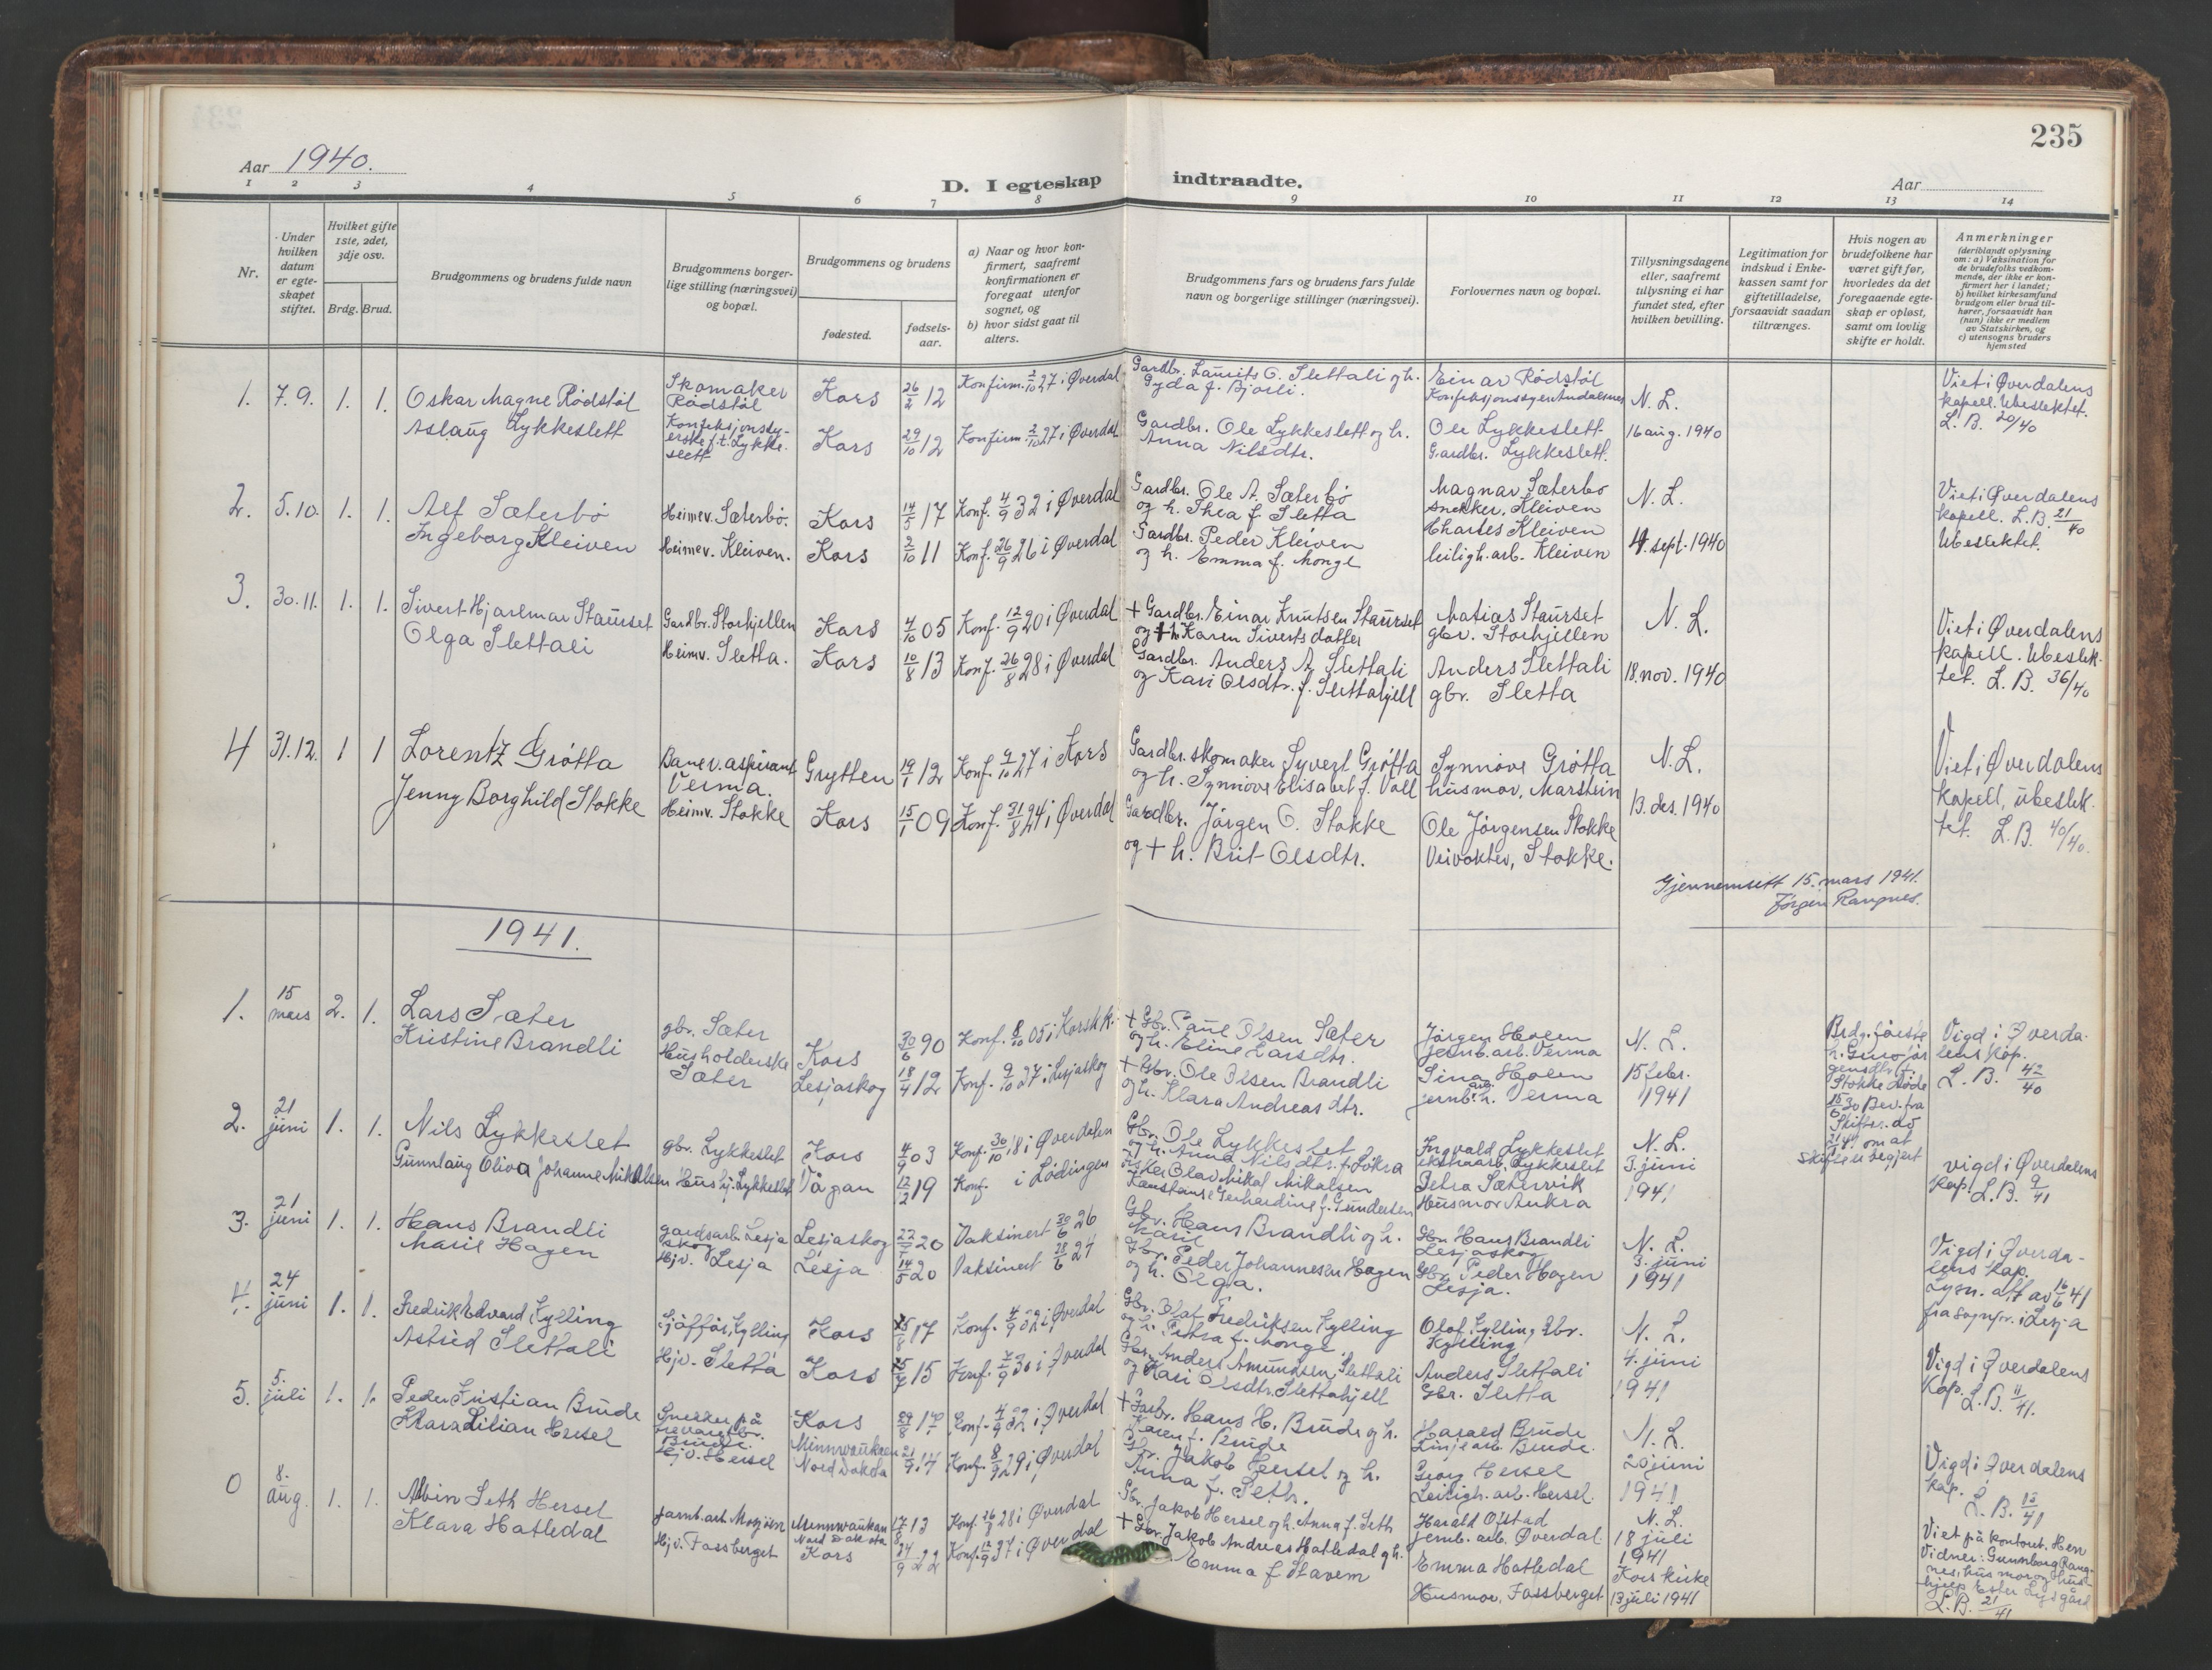 235
Aar 1940.
D. I egteskap indtraadte.
Aar
1 2 3 4 5 6 7 8 9 10 11 12 13 14
Nr.
Under hvilken datum er egteskapet stiftet.
Hvilket gifte 1ste, 2det, 3dje osv.
Brdg. Brud.
Brudgommens og brudens fulde navn
Brudgommens borgerlige stilling (næringsvei) og bopæl.
Brudgommens og brudens
fødested.
fødselsaar.
a) Naar og hvor konfirmert, saafremt konfirmationen er foregaat utenfor sognet, og
b) hvor sidst gaat til alters.
Brudgommens fars og brudens fars fulde navn og borgerlige stillinger (næringsvei).
Forlovernes navn og bopæl.
Tillysningsdagene eller, saafremt tillysning ei har fundet sted, efter hvilken bevilling.
Legitimation for indskud i Enkekassen samt for giftetilladelse, forsaavidt saadan tiltrænges.
Hvis nogen av brudefolkene har været gift før, hvorledes da det foregaaende egteskap er opløst, samt om lovlig skifte er holdt.
Anmerkninger
(deriblandt oplysning om: a) Vaksination for de brudefolks vedkommende, der ikke er konfirmert her i landet; b) hvilket kirkesamfund brudgom eller brud tilhører, forsaavidt han (hun) ikke er medlem av Statskirken, og c) utensogns bruders hjemsted
1. 7.9. 1. 1. Oskar Magne Rödstöl
Aslaug Lykkeslett
Skomaker Rödstöl
Konfeksjonssyerske f.t. Lykkeslett
Kors 26/2 12 Konfirm. 2/10 27 i Øverdal
Kors 29/10 12 Konfirm 2/10 27 i Øverdal
Gardbr. Laurits O. Slettali og h. Gyda f. Bjorli.
Gardbr. Ole Lykkeslett og h. Anna Nilsdtr.
Einar Rödstöl
Ole Lykkeslett
Gardbr. Lykkeslett.
N. L.
16 aug. 1940
Viet i Øverdalens kapell. Ubeslektet. L. B. 20/40
2. 5.10. 1. 1. Alf Sæterbö
Ingeborg Kleiven
Heimev. Sæterbö.
Heimev. Kleiven.
Kors 14/5 17 Konf. 4/9 32 i Øverdal
Kors 2/10 11 Konf. 26/9 26 i Øverdal
Gardbr. Ole A. Sæterbö og h. Thea f. Sletta
Gardbr. Peder Kleiven og h. Emma f. Monge
Magnar Sæterbo snekker, Kleiven
Charles Kleiven leiligh. arb. Kleiven
N. L.
4. sept. 1940
Viet i Øverdalens kapell. L.B. 21/40 Ubeslektet.
3. 30.11. 1. 1. Sivert Hjarlmar Staurset
Olga Slettali
Gardbr. Storhjellen
Heimv. Sletta.
Kors 4/10 05 Konf. 12/9 20 i Øverdal
Kors 10/8 13 Konf. 26/8 28 i Øverdal
+ Gardbr. Einar Knutsen Staurset og + h. Karen Sivertsdatter
Gardbr. Anders A. Slettali og Kari Olsdtr. f. Slettahjell
Matias Staurset gbr. Storhjellen
Anders Slettali gbr. Sletta
N. L.
18. nov. 1940
Viet i Øverdalens kapell. Ubeslektet. L. B. 36/40
4 31.12. 1 1 Lorentz Grötta
Jenny Borghild Stokke
Banev. aspirant Verma.
Heimv. Stokke
Grytten 19/1 12 Konf. 9/10 27 i Kors
Kors 15/1 09 Konf. 31/8 24 i Øverdal
Gardbr. skomaker Syvert Grötta og h. Synnöve Elisabet f. Voll
Gardbr. Jörgen O. Stokke og + h. Brit Olsdtr.
Synnöve Grötta husmor, Marstein
Ole Jörgensen Stokke Veivokter, Stokke.
N. L.
13. des. 1940
Viet i Øverdalens kapell, ubeslektet. L. B. 40/40.
Gjennemsett 15. mars 1941.
Jörgen Rangnes.
1941.
1. 15 mars 2. 1. Lars Sæter
Kristine Brandli
gbr. Sæter
Husholderske Sæter
Kors 30/6 90 Konf. 8/10 05 i Kors kk.
Lesjaskog 18/4 12 Konf. 9/10 27 i Lesjaskog
+ Gbr. Paul Olsen Sæter og h. Eline Larsdtr.
+ Gbr. Ole Olsen Brandli og h. Klara Andreasdtr.
Jörgen Holen jernb. arb. Verma
Sina Holen jernb. arb. h. Verma
N. L.
15 febr. 1941
Vigd i Øverdalens kap. L. B. 42/40
2. 21 juni 1. 1. Nils Lykkeslet
Gunnlaug Oliva Johanne Mikalsen
gbr. Lykkeslet
Hushj. Lykkeslet
Kors 4/9 03 Konf. 30/10 18 i Øverdalen
Vågan 12/12 19 Konf. i Lödingen
Gbr. Ole Lykkeslet og h. Anna Nilsdtr. f. Lökra
Fisker Olav Mikal Mikalsen Konstanse Gerhardine f. Gundersen
Ingvald Lykkeslet ekstraarb. Lykkeslet
Petra Sætervik Husmor Aukra
N. L.
3. juni 1941
vigd i Øverdalens kap. L. B. 9/41
3. 21 juni 1. 1. Hans Brandli
Marie Hagen
gardsarb. Lesjaskog
Hjv. Lesja
Lesjaskog 20 Vaksinert 30/6 26
Lesja 14/5 20 Vaksinert 28/6 24
Gbr. Hans Brandli og h. Marie
Gbr. Peder Johannesen Hagen og h. Olga.
Gbr. Hans Brandli Lesjaskog
Gbr. Peder Hagen Lesja.
N. L.
3. juni 1941
Vigd i Øverdalens kap. Lysn. att av 16/6 41 fra sognpr. i Lesja
4. 24 juni 1. 1. Fredrik Edvard Kylling
Astrid Slettali
Sjåför, Kylling
Hjv. Sletta
Kors 17 Konf. 4/9 32 i Øverdal
Kors 15 Konf. 30 i Øverdal
Gbr. Olaf Fredriksen Kylling og h. Petra f. Monge.
Gbr. Anders Amundsen Slettali og Kari Olsdtr. Slettahjell
Olaf Kylling, Gbr. Kylling
Anders Slettali Gbr. Sletta
N. L.
4. juni 1941
Vigd i Øverdalens Kap. L. B. 11/41.
5. 5. juli 1. 1. Peder Kristian Brude
Klara Lilian Hersel
Snekker på
Brude.
Hjv. Hersel
Kors 29/8 17 Konf. 4/9 32 i Øverdal
Minnwaukan Nord Dakota 21/9 14 Konf. 8/9 29 i Øverdal
Hans H. Brude og h. Karen f. Brude
Gbr. Jakob Hersel og h. Anna f. Seth.
Harald Brude Linjearb. Brude.
Georg Hersel Leiligh. arb. Hersel.
N. L.
20 juni 1941
Vigd i Øverdalens kap. L. B. 13/41
0 8. aug. 1. 1. Albin Seth Hersel
Klara Hatledal
Jarnb. arb Mosjöen
Hjv. Fassberget
Minnwaukan Nord Dakota 17/8 13 Konf. 28 i Øverdal
Kors 24/9 22 Konf. 37 i Øverdal
Gbr. Jakob Hersel og h. Anna f. Seth
+ Gbr. Jakob Andreas Hatledal og h. Emma f Stavem
Harald Ofstad jernb. arb. Øverdal
Emma Hatledal Husmor, Fassberget
N. L.
18 juli 1941
Kors kirke
13 juli 1941
Viet på kontoret. Hen
Vidner: Gunnborg Rangnes, husmor og hushjelp Ester Lysgård
L. B. 21/41